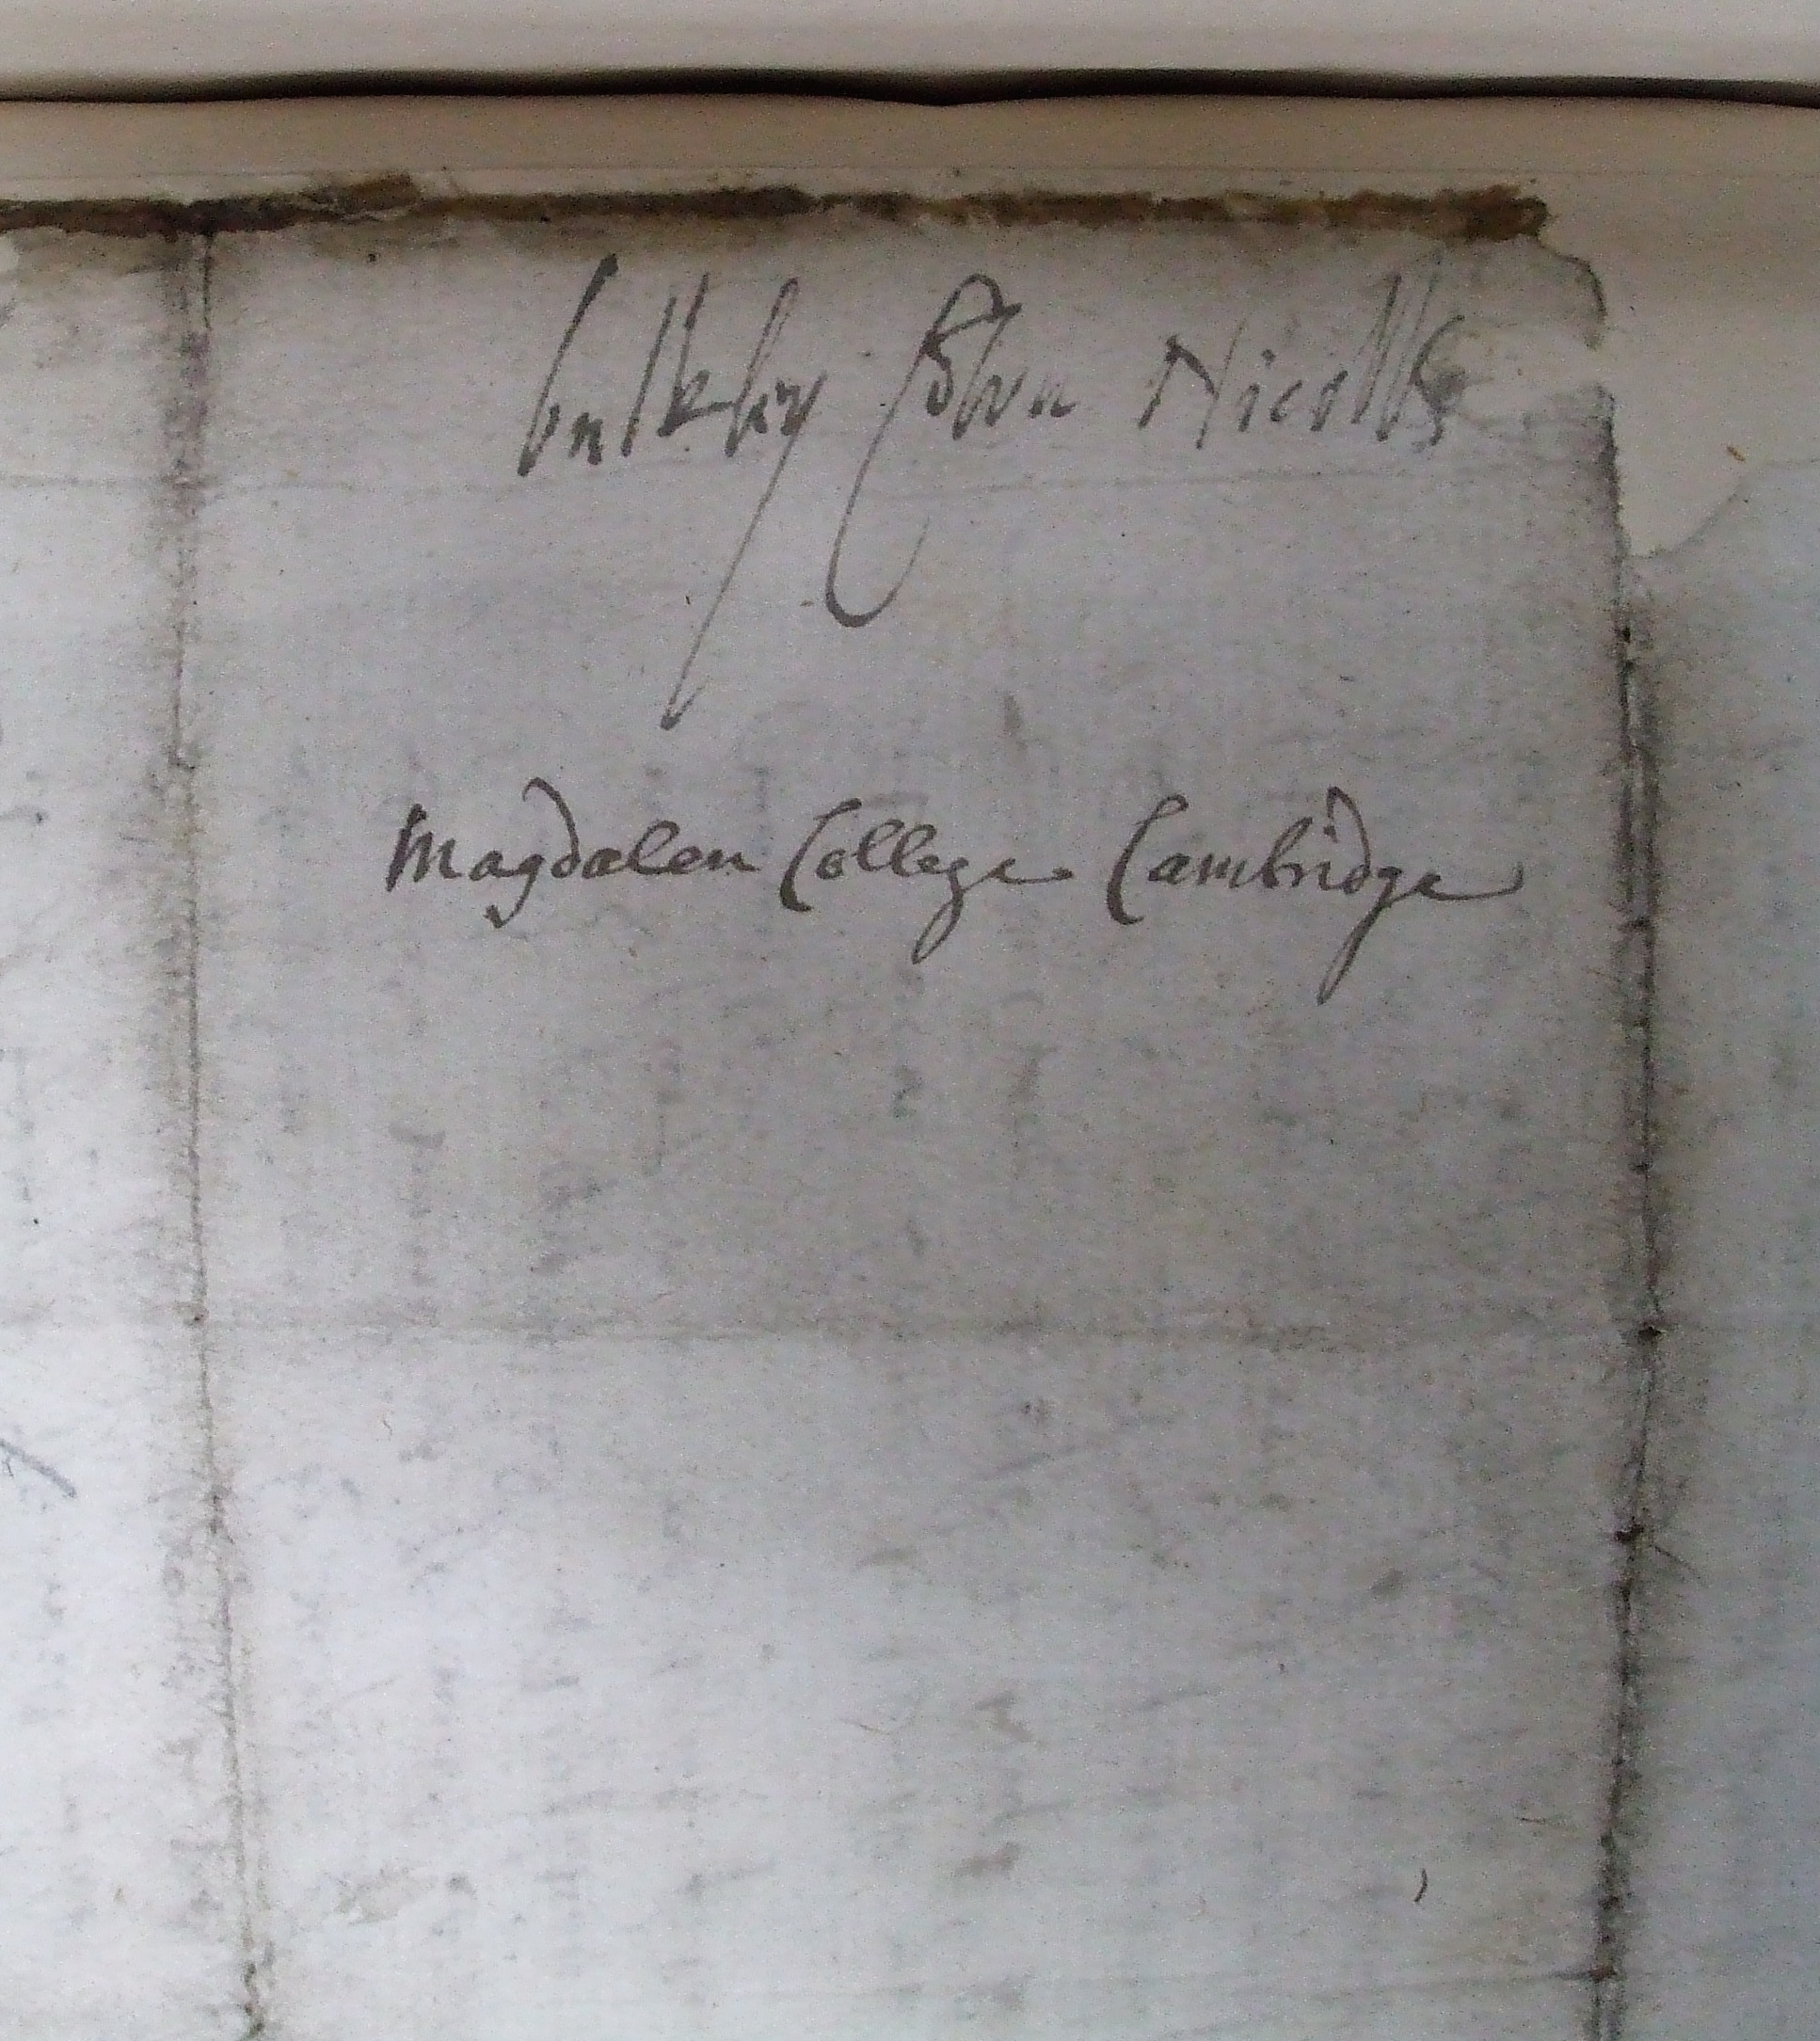 bulkley Nicolls
Magdalen College Cambridge